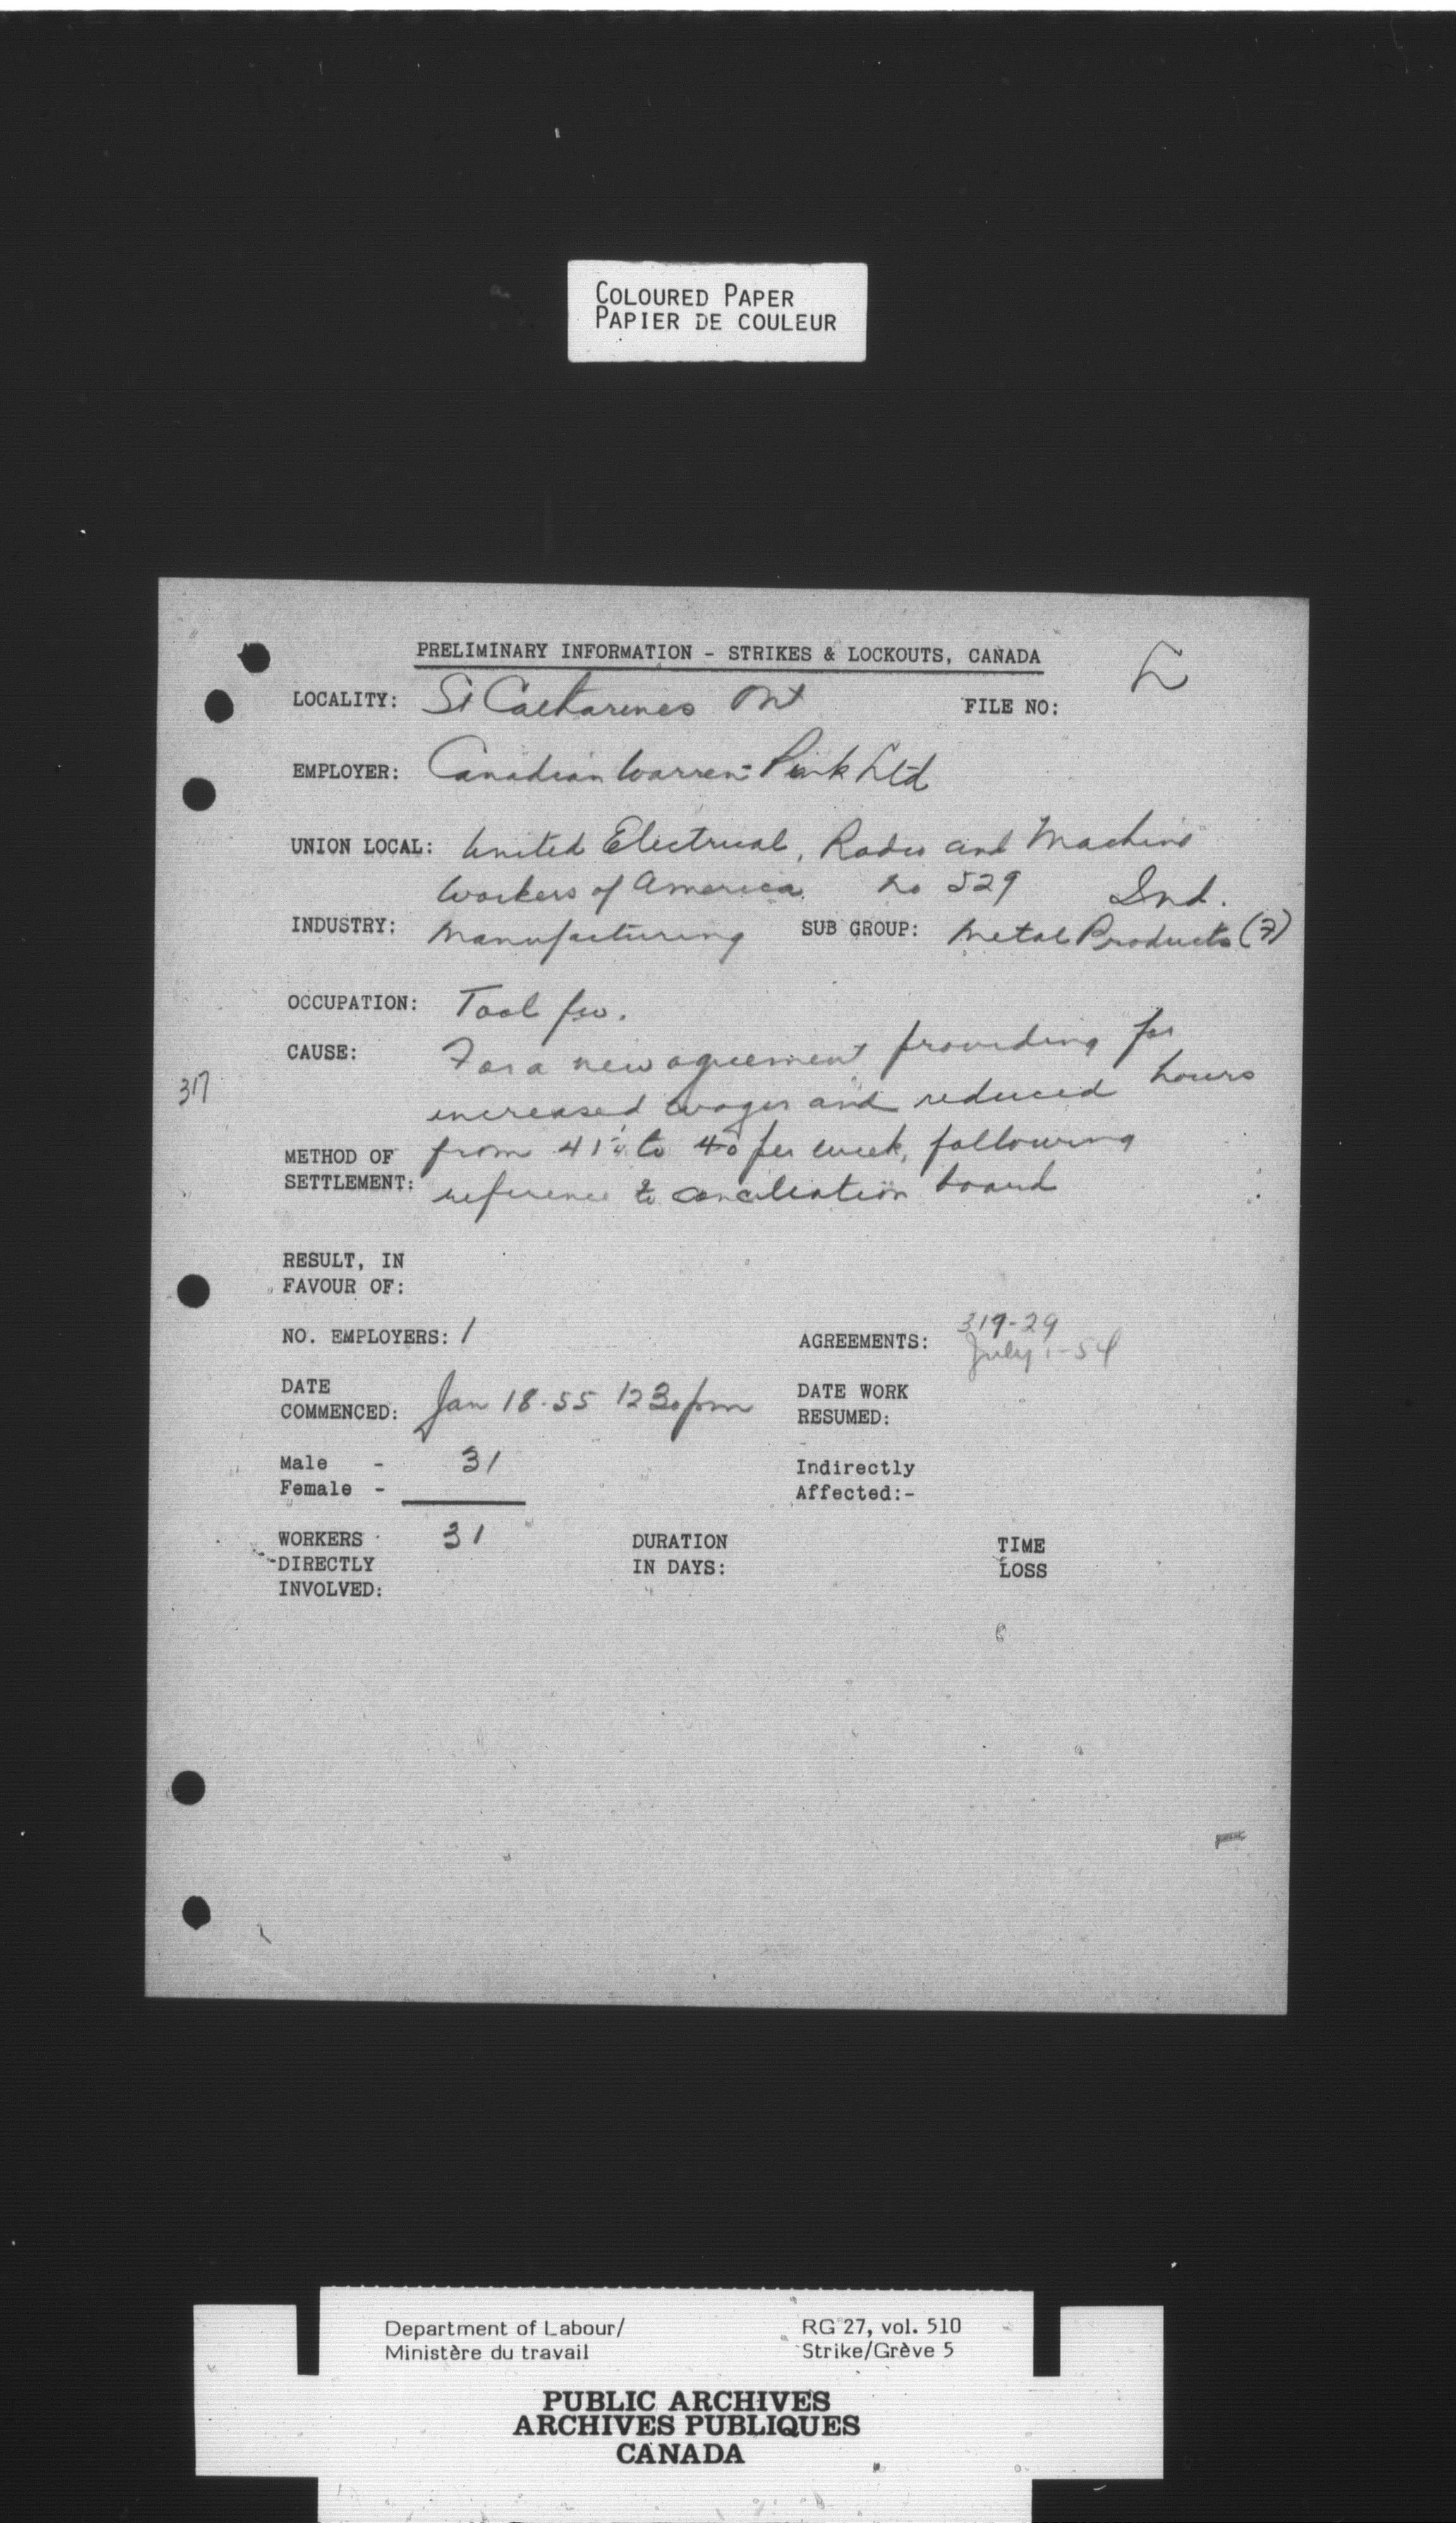 COLOURED PAPER
PAPIER DE COULEUR
PRELIMINARY INFORMATION - STRIKES & LOCKOUTS, CANADA
LOCALITY: St Catharines Ont FILE NO:
EMPLOYER: Canadian Warren-Pink Ltd
UNION LOCAL: United Electrical, Radio and Machine
Workers of America No 529 Ind.
INDUSTRY: Manufacturing SUB GROUP: Metal Products (7)
OCCUPATION: Tool
CAUSE: For a new agreement providing for
317
increased wages and reduced hours
METHOD OF SETTLEMENT: from to 40 per week, following
reference to conciliation board
RESULT, IN
FAVOUR OF:
NO. EMPLOYERS: 1 AGREEMENTS: 319-29
July 1-54
DATE
COMMENCED: Jan 18-55 12 30 pm DATE WORK
RESUMED:
Male - 31 Indirectly
Female - Affected:-
WORKERS 31 DURATION TIME
DIRECTLY IN DAYS: LOSS
INVOLVED:
Department of Labour/ RG 27, vol. 510
Ministère du travail Strike/Grève 5
PUBLIC ARCHIVES
ARCHIVES PUBLIQUES
CANADA